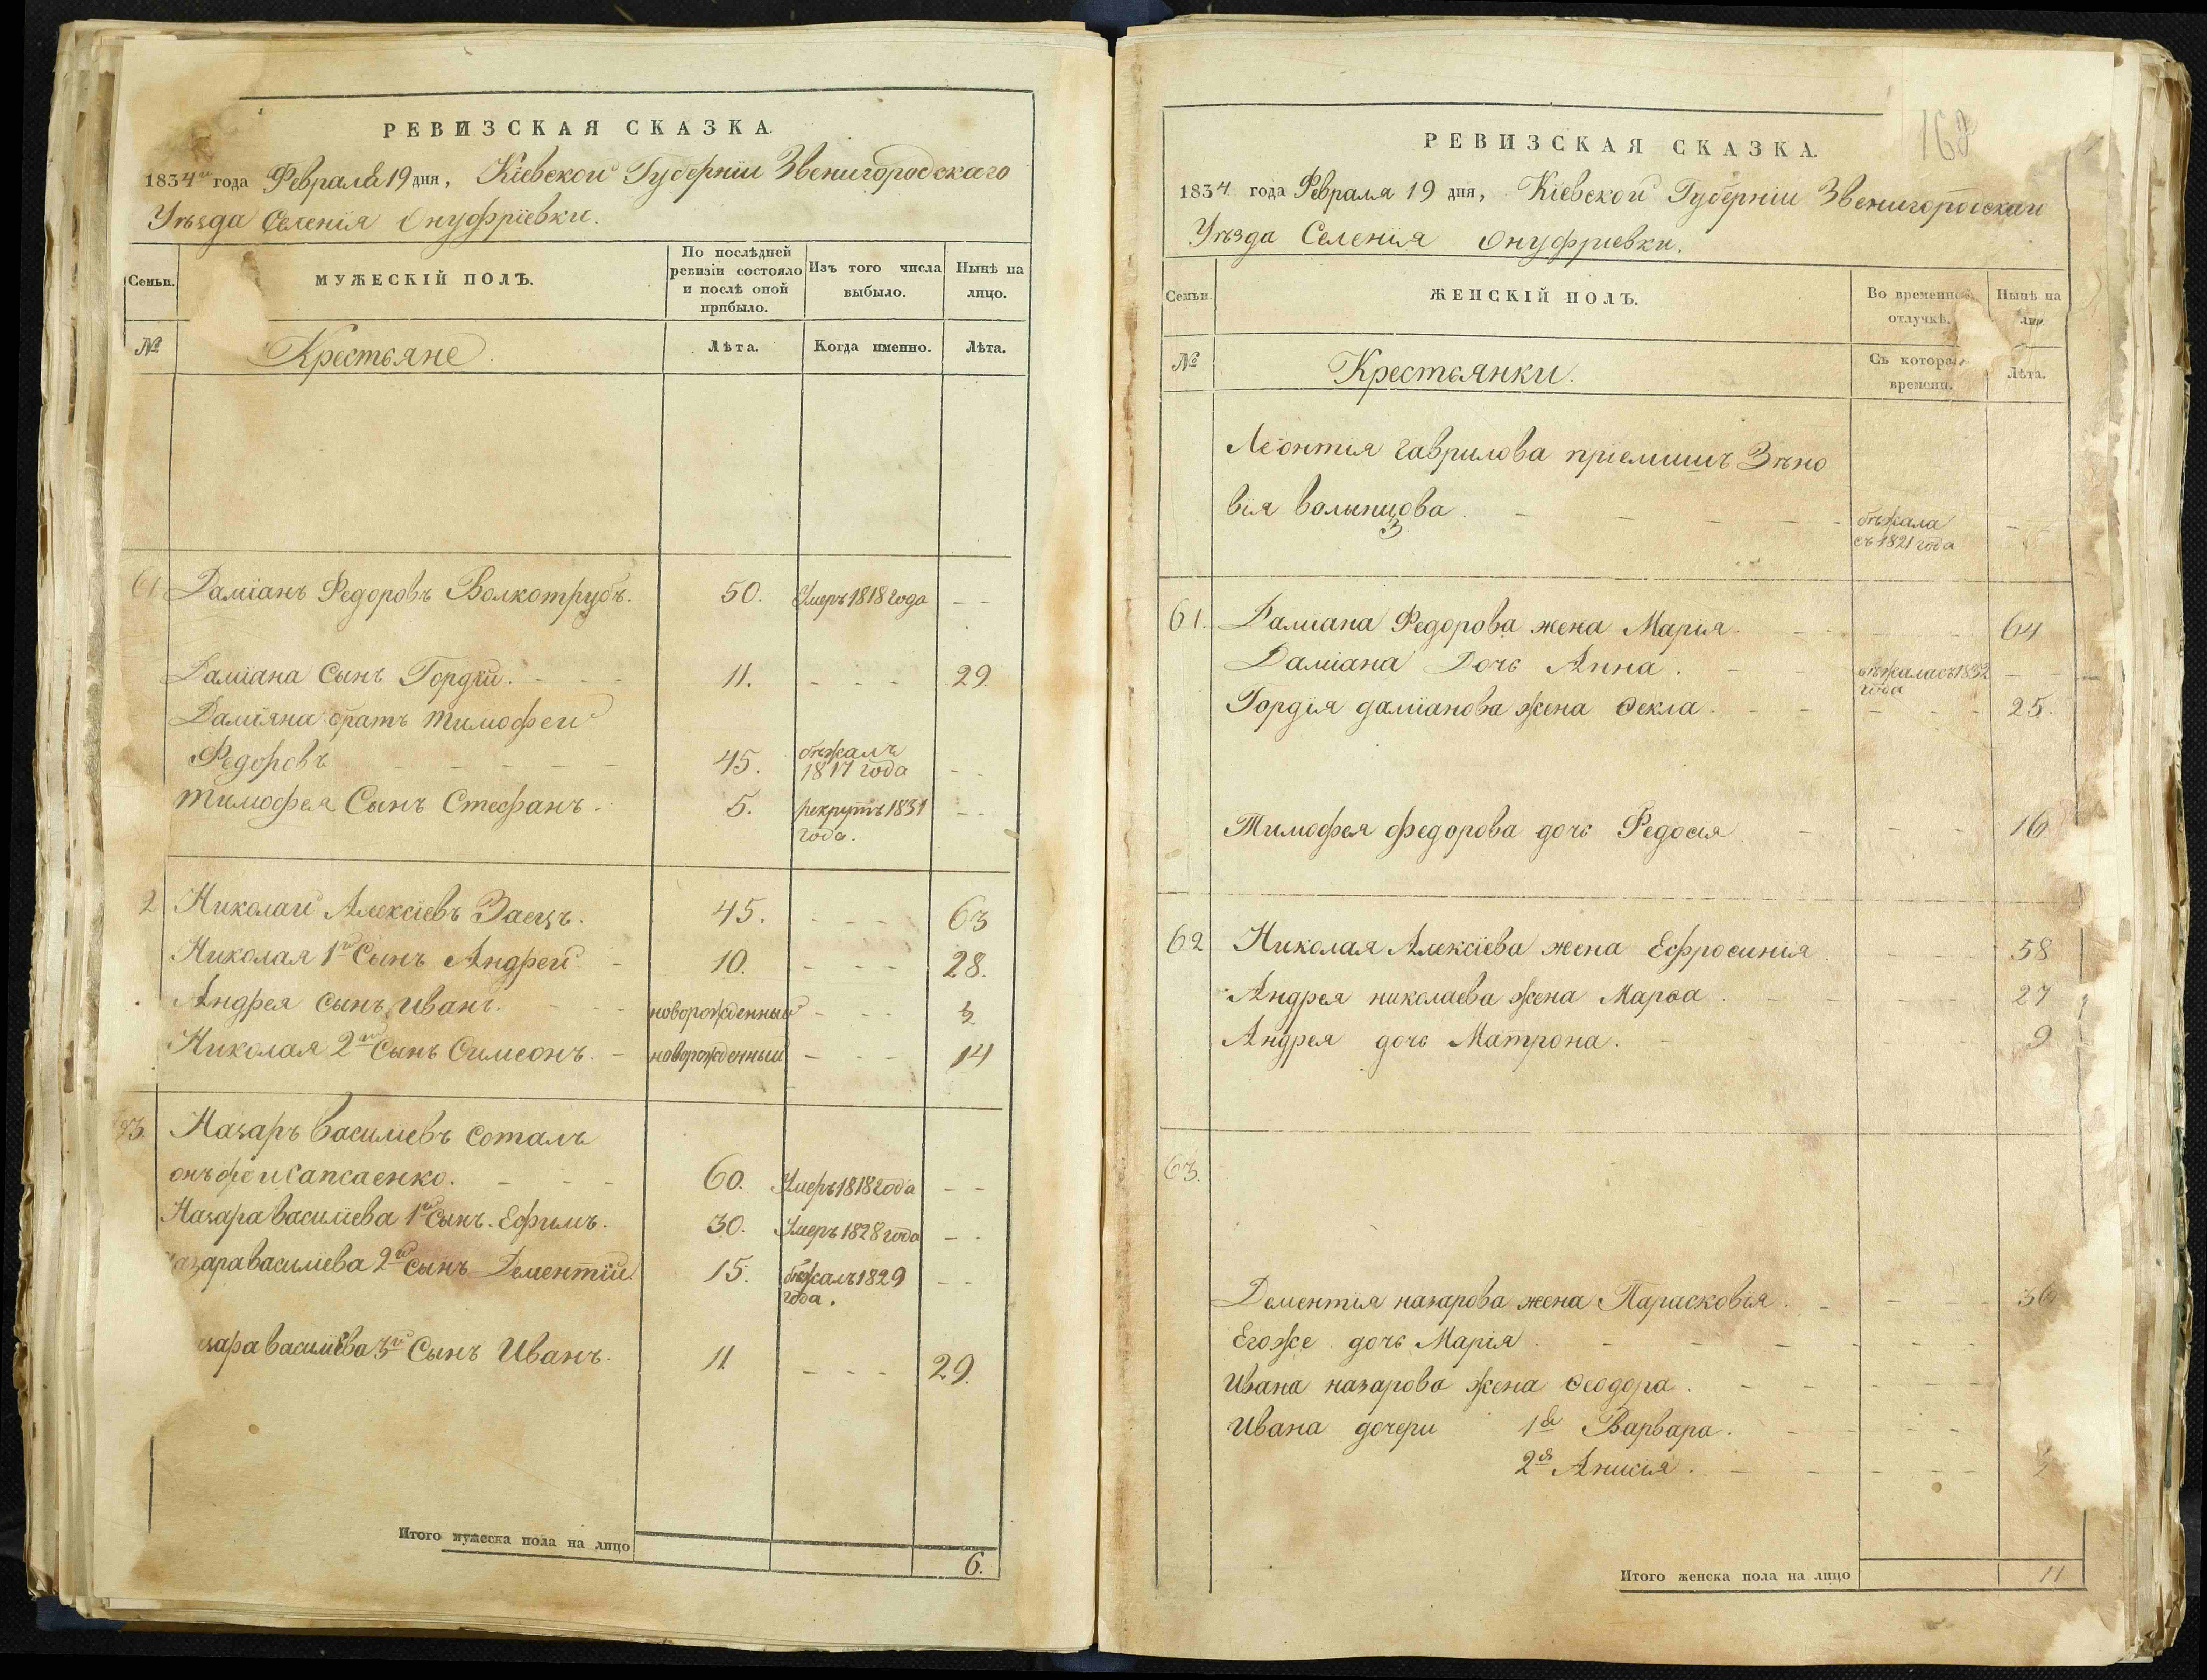 РЕВИЗСКАЯ СКАЗКА.
1834го года Февраля 19 дня, Кіевской Губерніи Звенигородскаго
Уѣзда Селенія Онуфріевки.
Семьи.
МУЖЕСКІЙ ПОЛЪ.
По послѣдней ревизіи состояло и послѣ оной прибыло.
Изъ того числа выбыло.
Нынѣ на лицо.
№
Крестьяне.
Лѣта.
Когда именно.
Лѣта.
61. Даміанъ Федоровъ Волкотрубъ. 50. Умеръ 1818 года - -
Даміана Сынъ Гордѣй. - - - 11. - - - 29.
Даміяна братъ тимофей
Федоровъ - - - - - 45. бѣжалъ 1817 года - -
тимофея Сынъ Стефанъ. 5. рекрутъ 1831 года. - -
2 Николай Алексіевъ Заецъ. 45. - - - 63
Николая 1й Сынъ Андрей. - 10. - - - 28.
Андрея сынъ иванъ. - - - новорожденный - - - 3
Николая 2й Сынъ Симеонъ. - новорожденный - - - 14
63. Назаръ василіевъ
60. Умеръ 1818 года - -
Назара василіева 1й Сынъ. Ефимъ. 30. Умеръ 1828 года - -
азара василіева 2й сынъ Дементій 15. бѣжалъ 1829 года. - -
зара василіева 3й Сынъ Иванъ. 11 - - - 29.
Итого мужеска пола на лицо 6.
168
РЕВИЗСКАЯ СКАЗКА.
1834 года Февраля 19 дня, Кіевской Губерніи Звенигородскаго
Уѣзда Селенія Онуфріевки.
Семьи.
ЖЕНСКІЙ ПОЛЪ.
Во временной отлучкѣ.
Нынѣ на лицо
№
Крестьянки.
Съ котора времени.
Лѣта.
Леонтія гаврилова пріемишъ Зѣно
вія - - - - бѣжала съ 1821 года - -
61. Даміана Федорова жена Марія. - - - 64
Даміана Дочь Анна. - - бѣжала съ 1832 года - -
Гордія даміанова жена Ѳекла. - - - - - 25.
Тимофея федорова дочь Федосія. - - - 16
62 Николая Алексіева жена Ефросинія. - - - 58
Андрея николаева жена Марѳа. - - - - - 27
Андрея дочь Матрона. - - 9
63.
Дементія назарова жена Парасковѣя. - - - - 36
Егоже дочь Марія. - - - - - -
Ивана назарова жена Ѳеодора. - - - - -
Ивана дочери 1я Варвара. - - - - -
2я Анисія. - - - - -
Итого женска пола на лицо 11